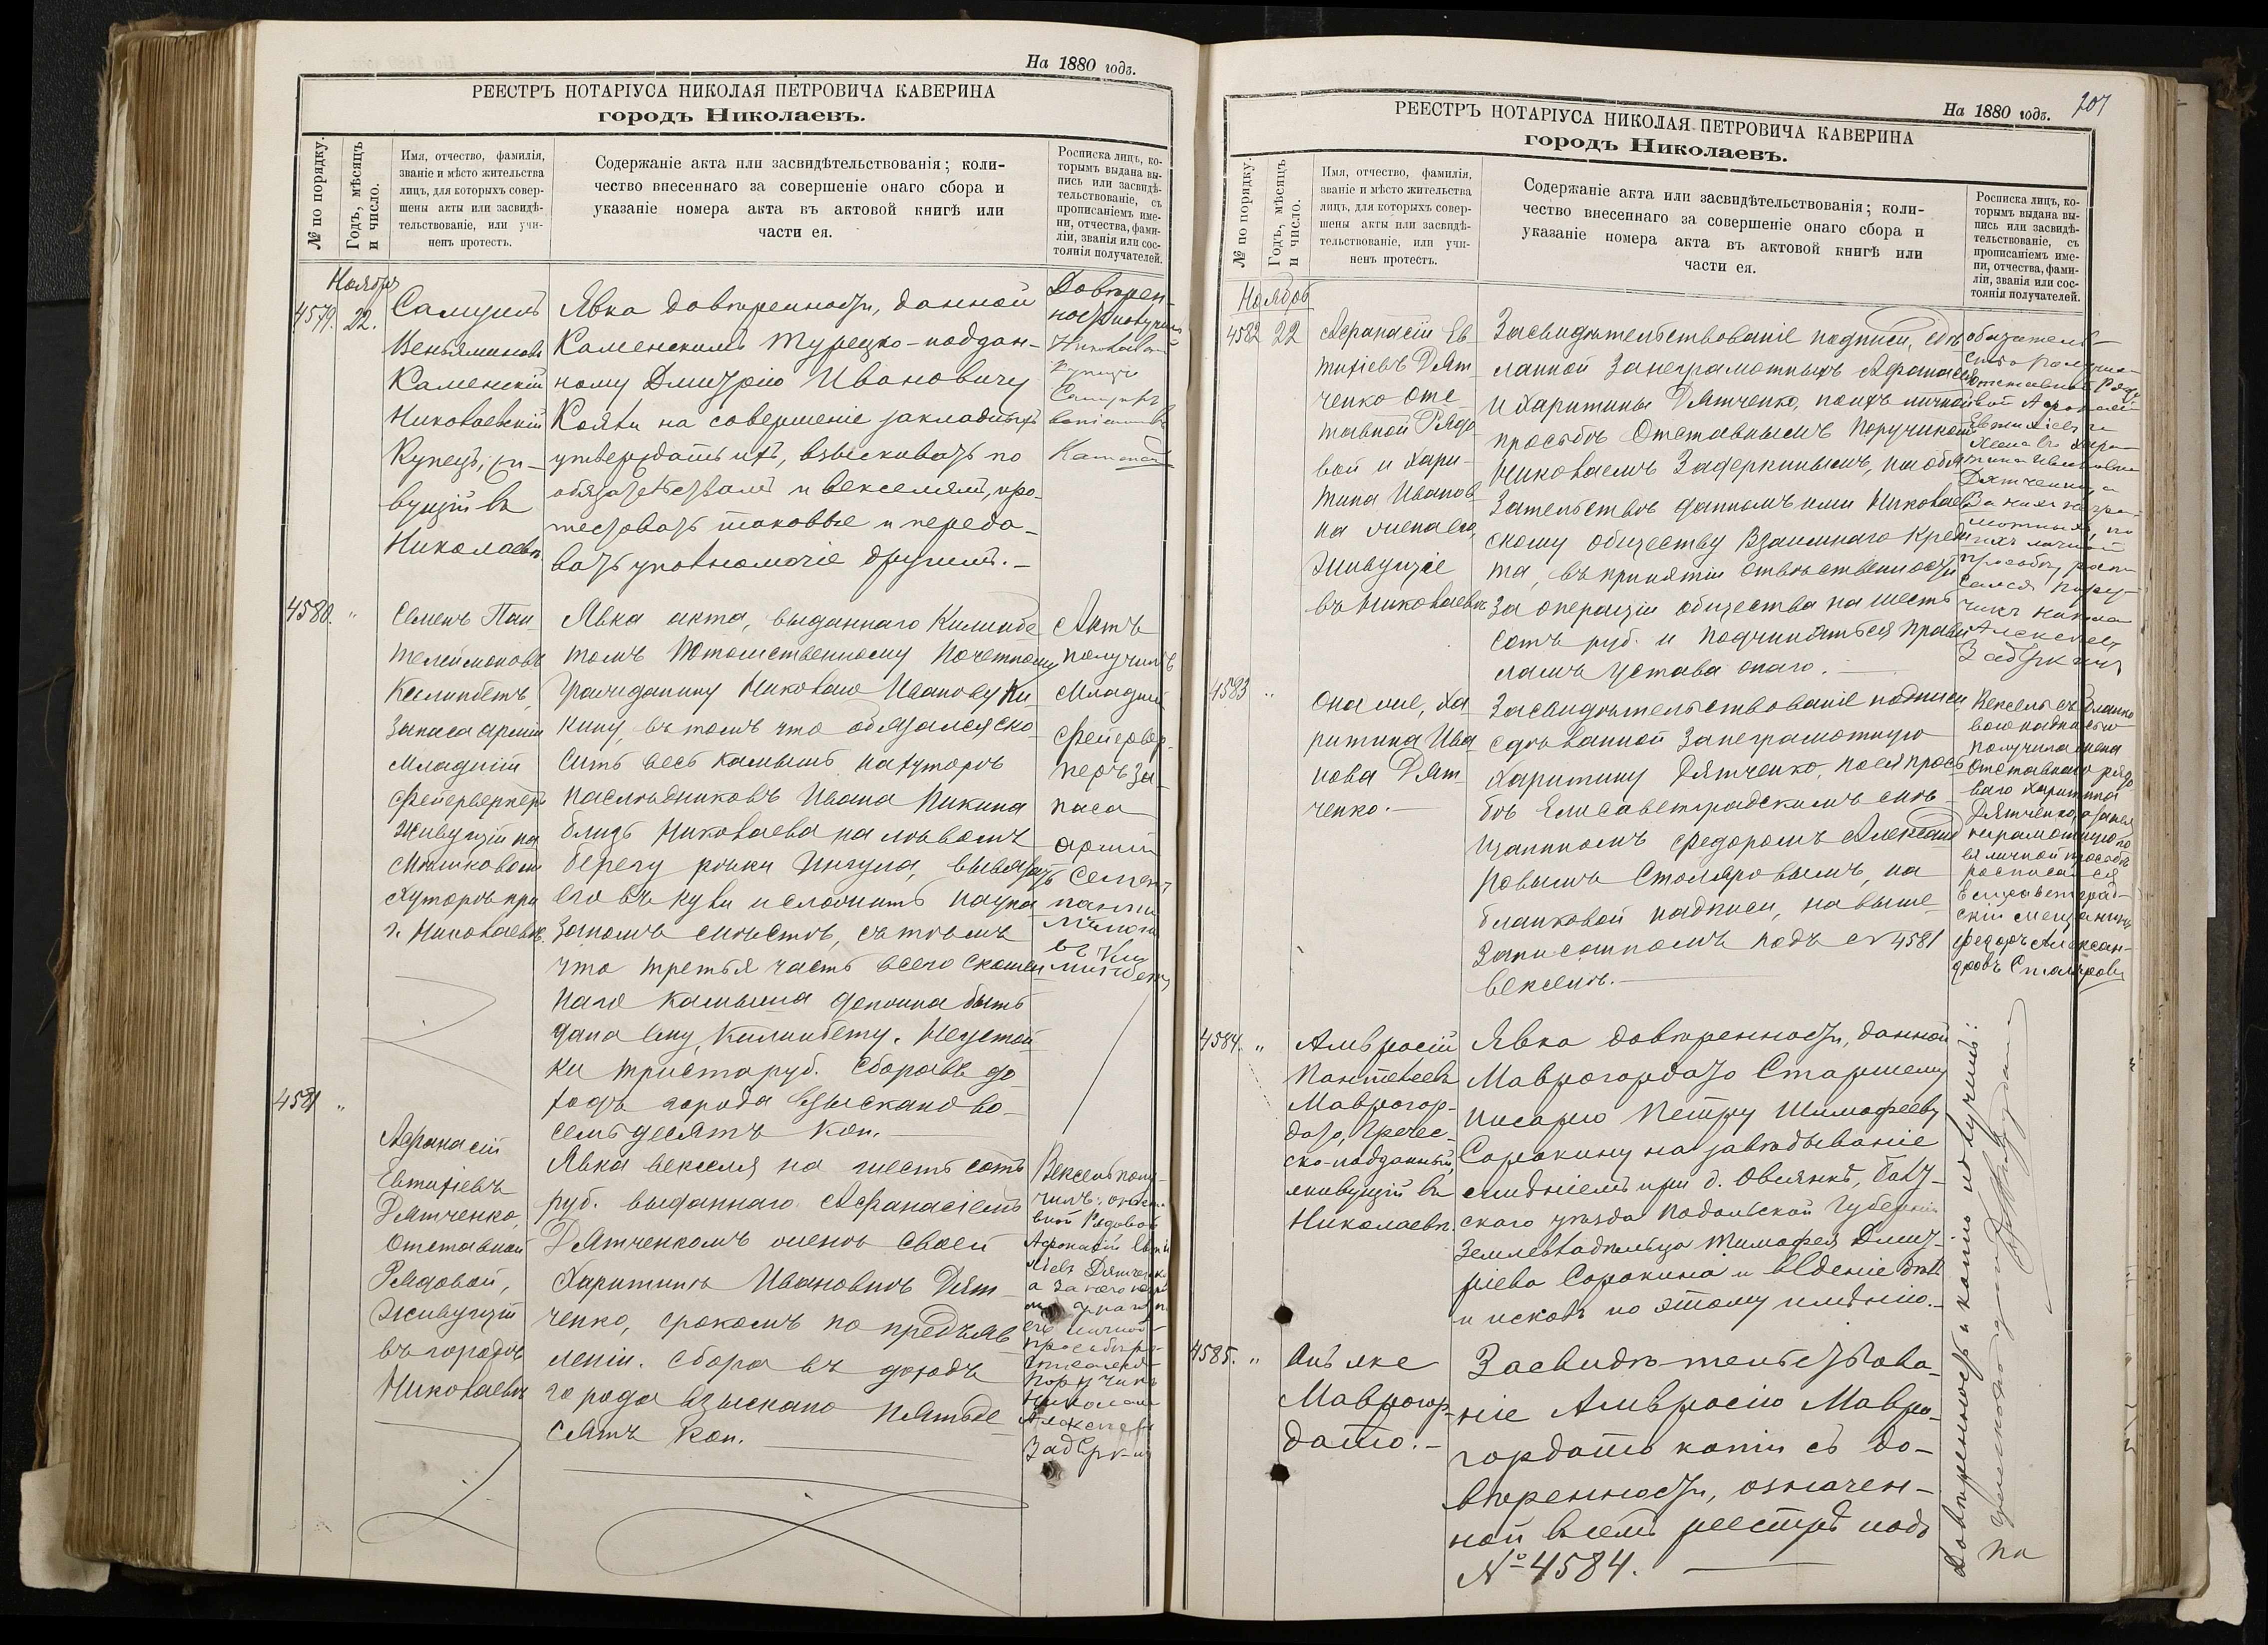 На 1880 годъ.
РЕЕСТРЪ НОТАРІУСА НИКОЛАЯ ПЕТРОВИЧА КАВЕРИНА
городъ Николаевъ.
№ по порядку.
Годъ, мѣсяцъ
и число.
Имя, отчество, фамилія,
званіе и мѣсто жительства
лицъ, для которыхъ совер-
шены акты или засвидѣ-
тельствованіе, или учи-
ненъ протестъ.
Содержаніе акта или засвидѣтельствованія; коли-
чество внесеннаго за совершеніе онаго сбора и
указаніе номера акта въ актовой книгѣ или
части ея.
Росписка лицъ, ко-
торымъ выдана вы-
пись или засвидѣ-
тельствованіе, съ
прописаніемъ име-
ни, отчества, фами-
ліи, званія или сос-
тоянія получателей.
Ноябрь
4579. 22.
Самуилъ
Веньяминовъ
Каменскій
Николаевскій
Купецъ, жи-
вущій въ
Николаевѣ.
Явка довѣренности, данной
Каменскимъ Турецко-поддан-
ному Дмитрію Ивановичу
на совершеніе закладныхъ
утверждать ихъ, взыскивать по
обязательствамъ и векселямъ, про-
тестовать таковые и переда-
вать уполномочіе другимъ.-
Довѣрен-
ность получилъ
4580. "
Семенъ Пан
телеймоновъ
Килимбетъ,
Запаса арміи
Младшій
Фейерверкеръ
Живущій на
хуторѣ при
г. Николаевѣ.
Явка акта, выданнаго Килимбе
томъ Потомственному Почетному
Гражданину Николаю Иванову Ки
кину, въ томъ что обязался ско
сить весь камышъ на хуторѣ
наслѣдниковъ Ивана Кикина
близъ Николаева на лѣвомъ
берегу рѣки Ингула, вывязать
его въ кули и сложить на ука
занномъ мѣстѣ, съ тѣмъ
что третья часть всего скошен
наго камыша должна быть
дана ему, Килимбету. Неустой
ки триста руб. Сбора въ до
ходъ города взыскано во-
семьдесятъ коп.
Актъ
получилъ
Младшій
Фейервер-
керъ За-
паса
арміи
Семенъ
4581 "
Афанасій
Евтихіевъ
Дятченко,
Отставной
Рядовой,
Живущій
въ городѣ
Николаевѣ
Явка векселя на шесть сотъ
руб. выданнаго Афанасіемъ
Дятченкомъ женѣ своей
Харитинѣ Ивановнѣ Дят
ченко, срокомъ по предъяв
леніи. Сбора въ доходъ
города взыскано пятьде
сятъ коп.
Вексель полу-
чилъ отста-
вной Рядовой
Афанасій
Поручикъ
Николай
Алексеевъ
На 1880 годъ.
207
РЕЕСТРЪ НОТАРІУСА НИКОЛАЯ ПЕТРОВИЧА КАВЕРИНА
городъ Николаевъ.
№ по порядку.
Годъ, мѣсяцъ
и число.
Имя, отчество, фамилія,
званіе и мѣсто жительства
лицъ, для которыхъ совер-
шены акты или засвидѣ-
тельствованіе, или учи-
ненъ протестъ.
Содержаніе акта или засвидѣтельствованія; коли-
чество внесеннаго за совершеніе онаго сбора и
указаніе номера акта въ актовой книгѣ или
части ея.
Росписка лицъ, ко-
торымъ выдана вы-
пись или засвидѣ-
тельствованіе, съ
прописаніемъ име-
ни, отчества, фами-
ліи, званія или сос-
тоянія получателей.
Ноябрь
4582 22
Афанасій Ев
тихіевъ Дят
ченко Отс
тавной Рядо
вой и Хари
тина Иванов
на жена его,
Живущіе
въ Николаевѣ
Засвидѣтельствованіе подписи, сдѣ
ланной за неграмотныхъ Афанасія
и Харитины Дятченко, по ихъ личной
просьбѣ Отставнымъ Поручикомъ
Николаемъ Задеркинымъ, на обя
зательствѣ данномъ ими Николаев
скому обществу Взаимнаго Креди
та, въ принятіи отвѣтственности
за операціи общества на шесть
сотъ руб. и подчиняться прави
ламъ Устава онаго.
4583 "
Она же, Ха
ритина Ива
нова Дят
ченко.-
Засвидѣтельствованіе подписи
сдѣланной за неграмотную
Харитину Дятченко, по ея прось
бѣ Елисаветградскимъ мѣ
щаниномъ Федоромъ Александ
ровымъ Столяровымъ, на
бланковой надписи, на выше
записанномъ подъ № 4581
векселѣ.
Вексель съ бланко
вою надписью
получила жена
Отставного рядо
ваго Харитина
Дятченко, а за нея
неграмотную по
ея личной просьбѣ
росписался
Елисаветград-
скій мещанинъ
Федоръ Алексан-
дровъ Столяровъ
4584. "
Амвросій
Пантелеевъ
Маврогор-
дато, Гречес-
ско-подданный,
живущій въ
Николаевѣ.
Явка довѣренности, данной
Маврогордато Старшему
писарю Петру Тимофееву
Сорокину на завѣдываніе
имѣніемъ при д. Овсянкѣ, Балт-
скаго уѣзда Подольской Губерніи
Землевладѣльца Тимофея Дмит-
ріева Сорокина и веденіе дѣлъ
и исковъ по этому имѣнію.-
Довѣренность и копію получилъ:
4585. "
Онъ же
Маврогор-
дато.-
Засвидѣтельствова-
ніе Амвросію Мавро-
гордато копіи съ до-
вѣренности, означен-
ной въ семъ реестрѣ подъ
№ 4584.